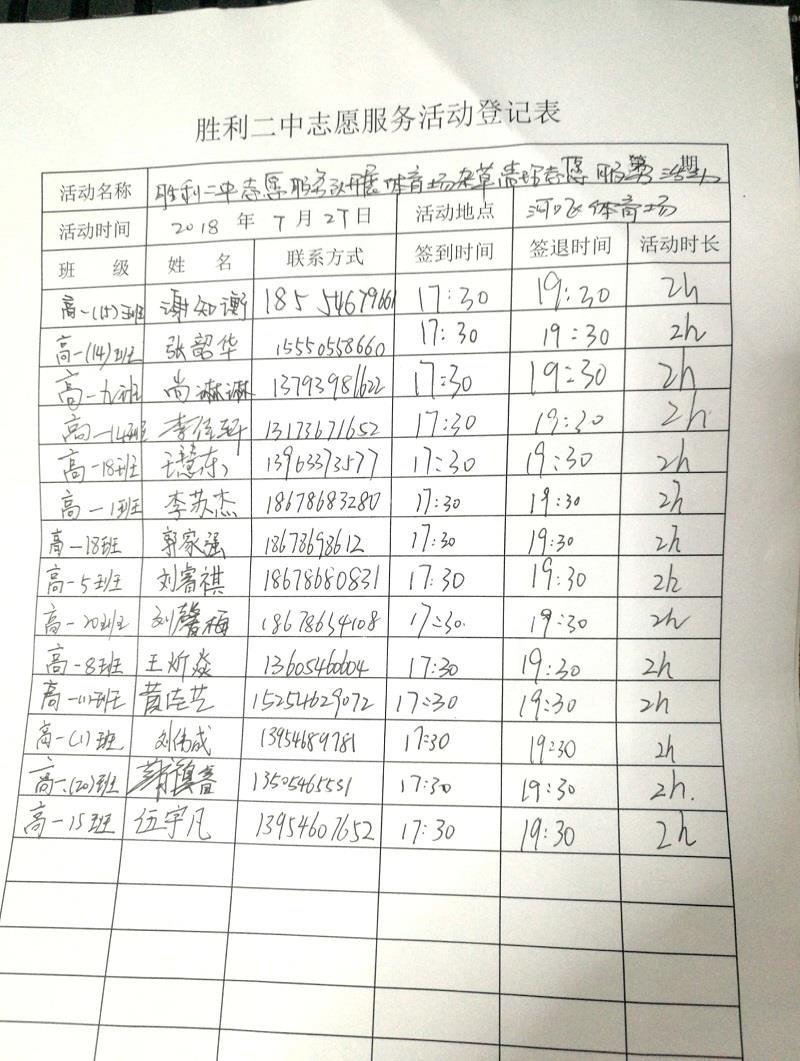 胜利二中志愿服务活动登记表
活动名称 胜利二中志愿服务队开展体育场杂草清理志愿服务活动 第 期
活动时间 2018 年 7 月 27 日 活动地点 体育场
班 级 姓 名 联系方式 签到时间 签退时间 活动时长
高一(15)班 谢知衡 18554679661 17:30 19:30 2h
高一(14)班 张韶华 15550558660 17:30 19:30 2h
高一九班 尚琳琳 13793981622 17:30 19:30 2h
高一14班 李佳 13173671652 17:30 19:30 2h
高一18班 王慧东 13963373577 17:30 19:30 2h
高一1班 李苏杰 18678683280 17:30 19:30 2h
高一18班 郭家强 18678698612 17:30 19:30 2h
高一5班 刘睿祺 18678680831 17:30 19:30 2h
高一20班 刘馨梅 18678654108 17:30 19:30 2h
高一8班 王炘焱 13605460604 17:30 19:30 2h
高一11班 黄佳艺 15254629072 17:30 19:30 2h
高一(1)班 刘伟成 13954689781 17:30 19:30 2h
高一(20)班 13505465531 17:30 19:30 2h.
高一15班 伍宇凡 13954607652 17:30 19:30 2h